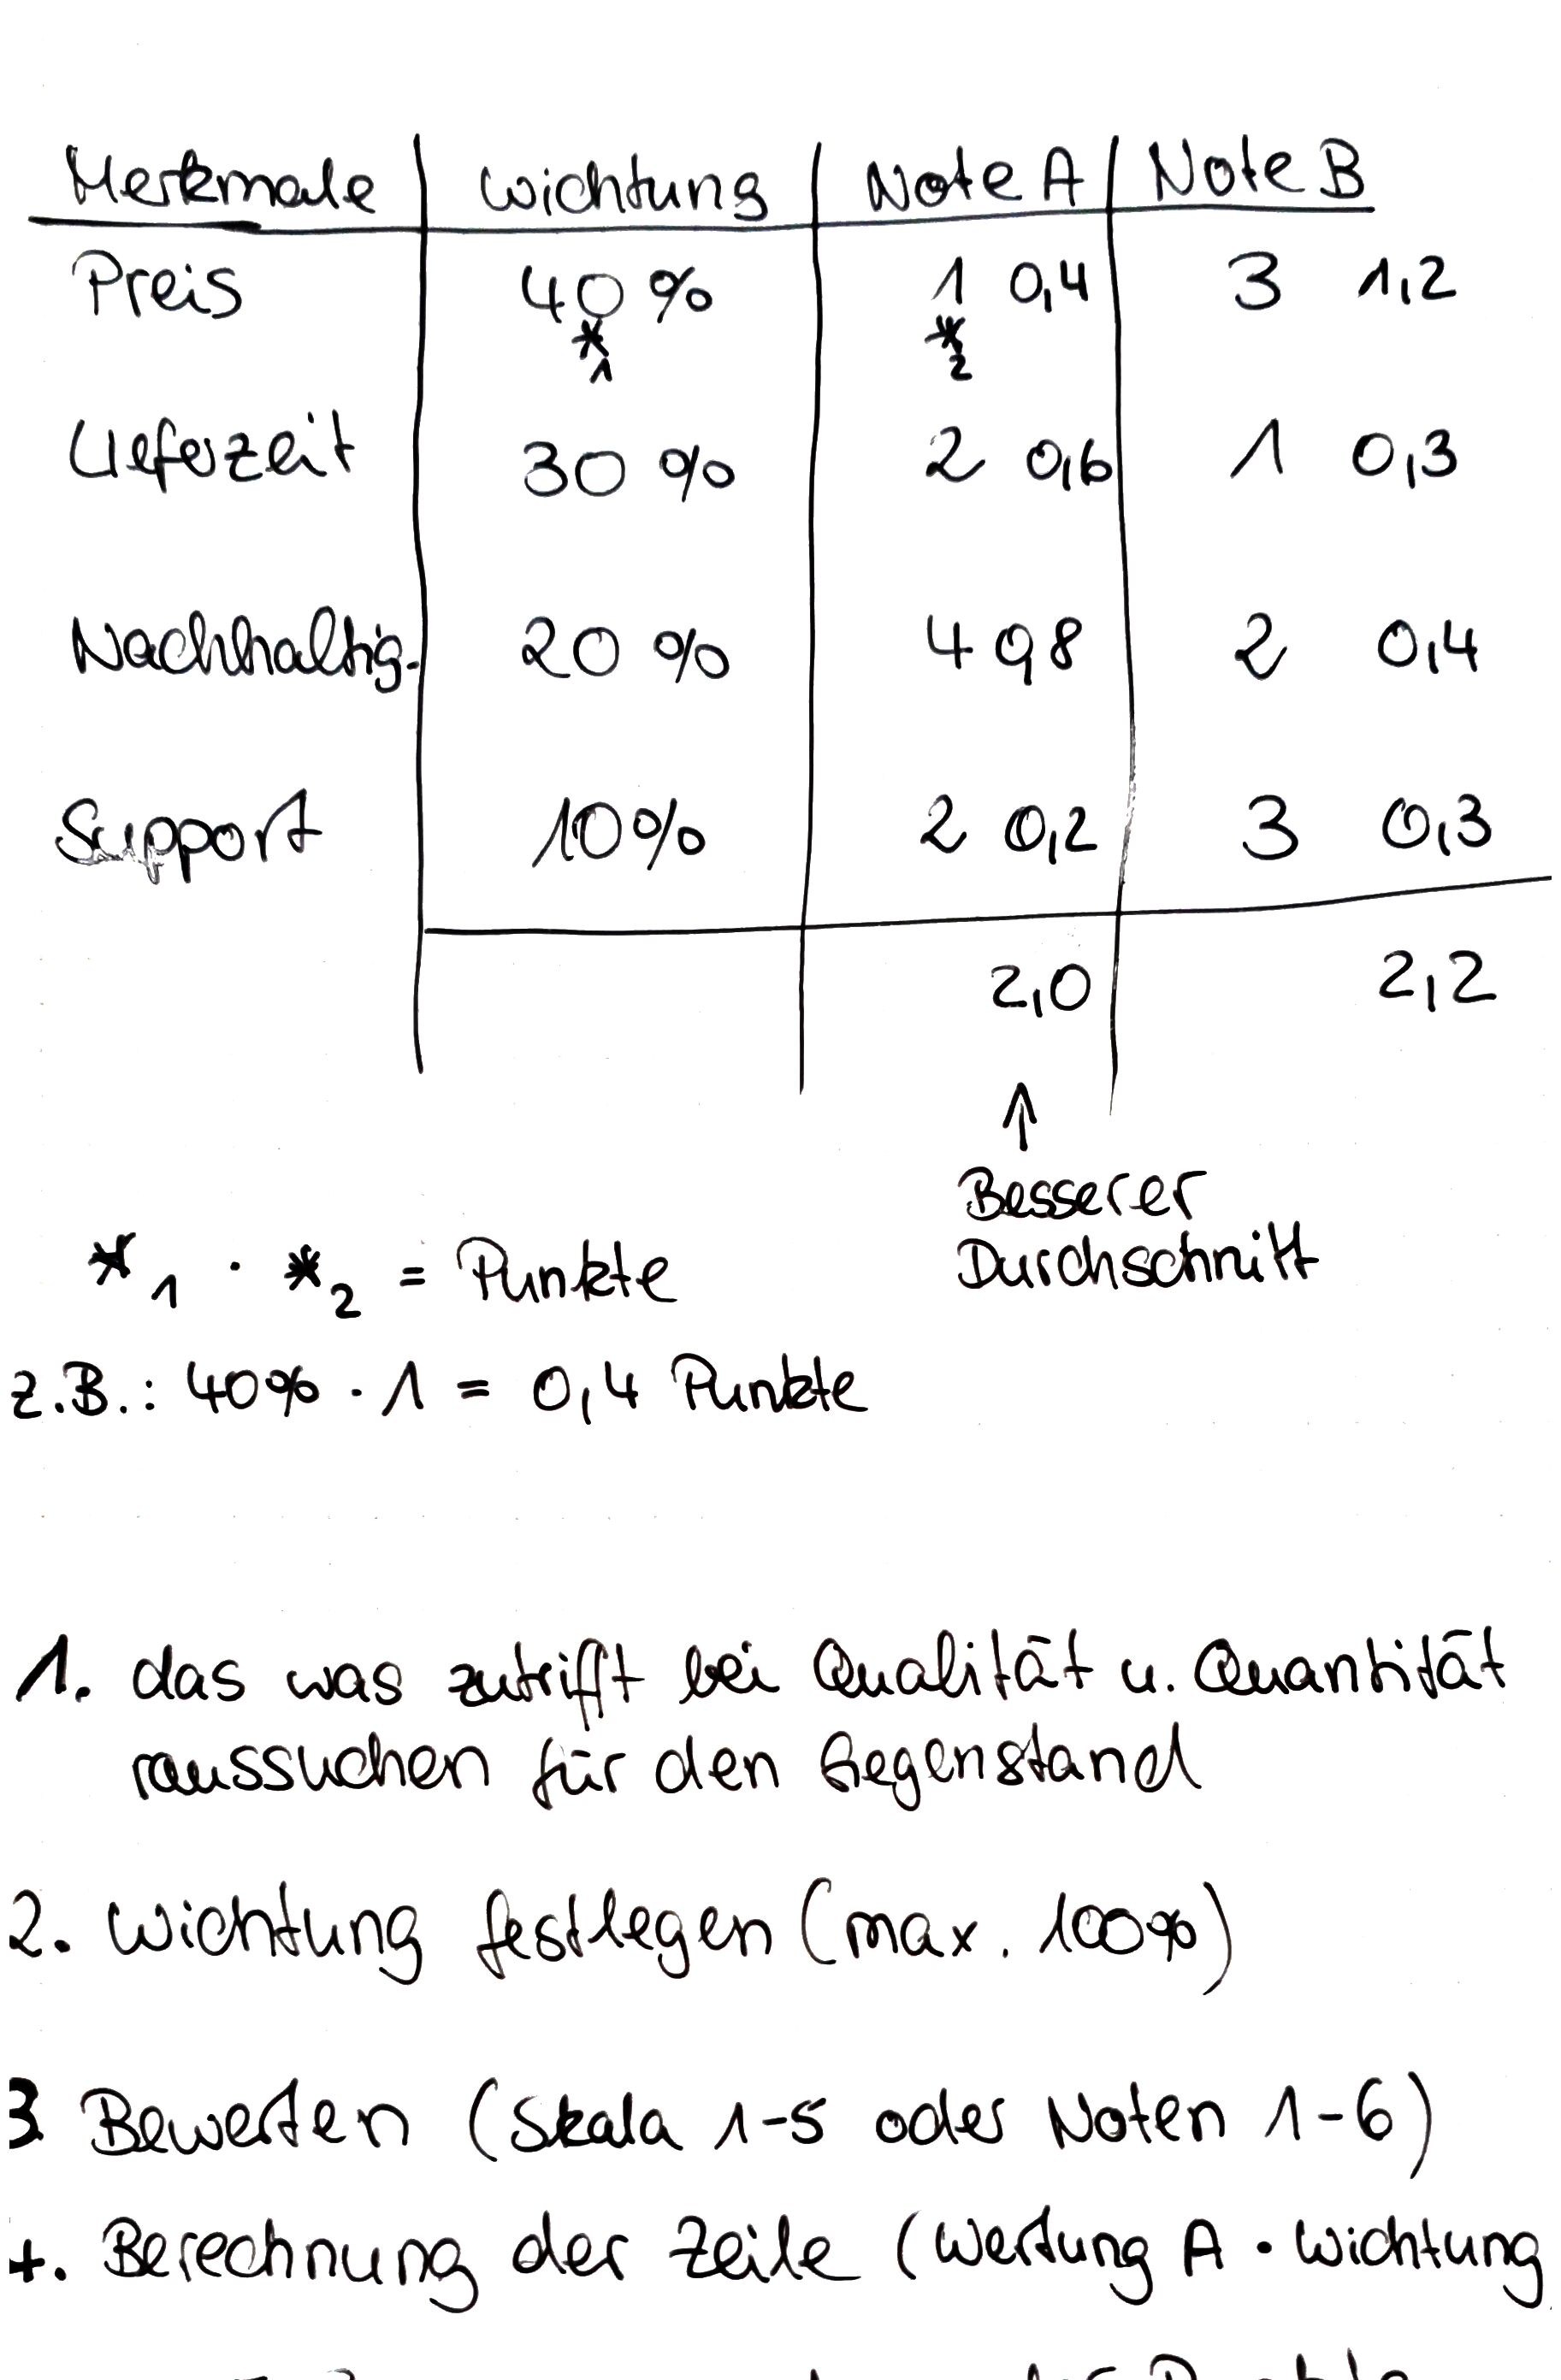 Merkmale Wichtung Note A Note B
Preis 40% 1 0,4 3 1,2
*1 *2
Lieferzeit 30% 2 0,6 1 0,3
Nachhaltig. 20% 4 0,8 2 0,4
Support 10% 2 0,2 3 0,3
2,0 2,2
↑
Besserer
Durchschnitt
*1 · *2 = Punkte
z.B.: 40% · 1 = 0,4 Punkte
1. das was zutrifft bei Qualität u. Quantität
raussuchen für den Gegenstand
2. Wichtung festlegen (max. 100%)
3 Bewerten (Skala 1-5 oder Noten 1-6)
4. Berechnung der Zeile (Wertung A · Wichtung